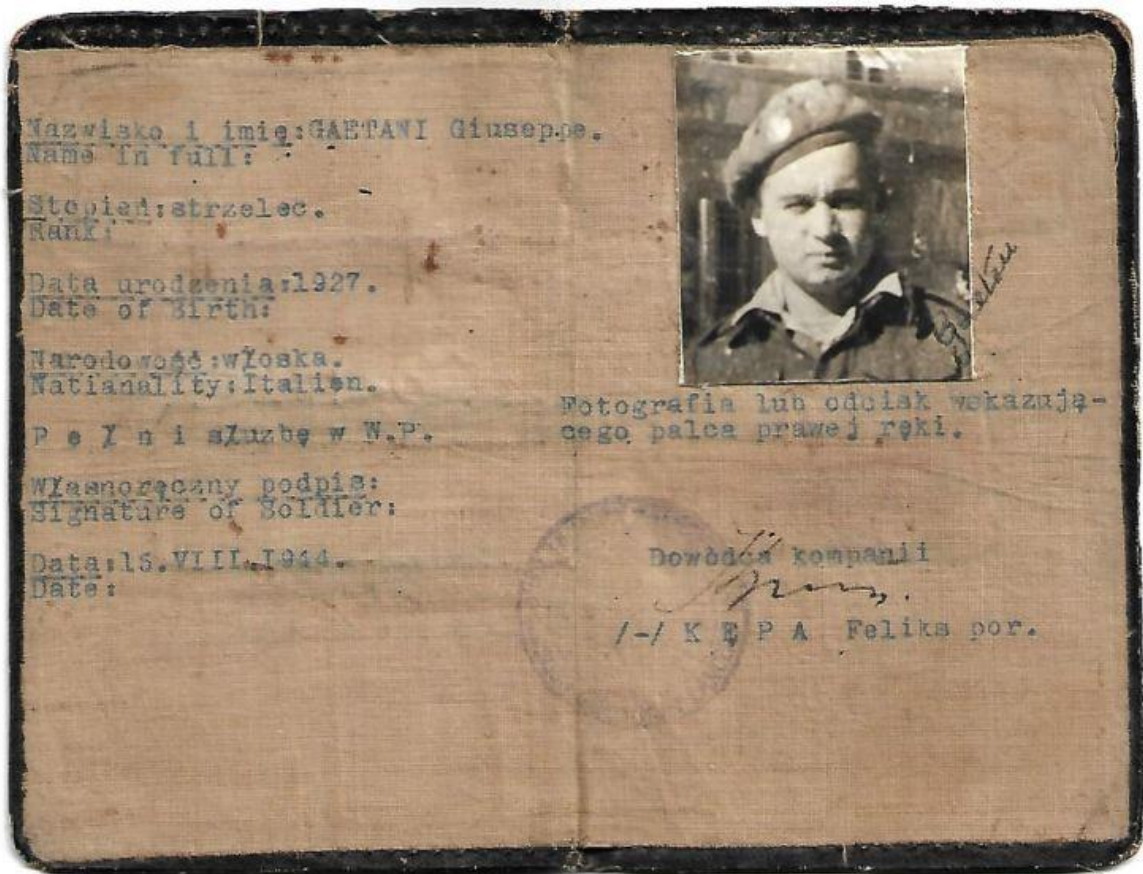 Nazwisko i imię:GAETANI Giuseppe.
Name in full:
Stopień:strzelec.
Rank:
Data urodzenia:1927.
Date of Birth:
Narodowość:włoska.
Natianality:Italien.
P e ł n i służbę w W.P.
Własnoręczny podpis:
Signature of Soldier:
Data:15.VIII.1944.
Date:
Fotografia lub odcisk wskazują-
cego palca prawej ręki.
Dowódca kompanii
/-/ K Ę P A Feliks por.